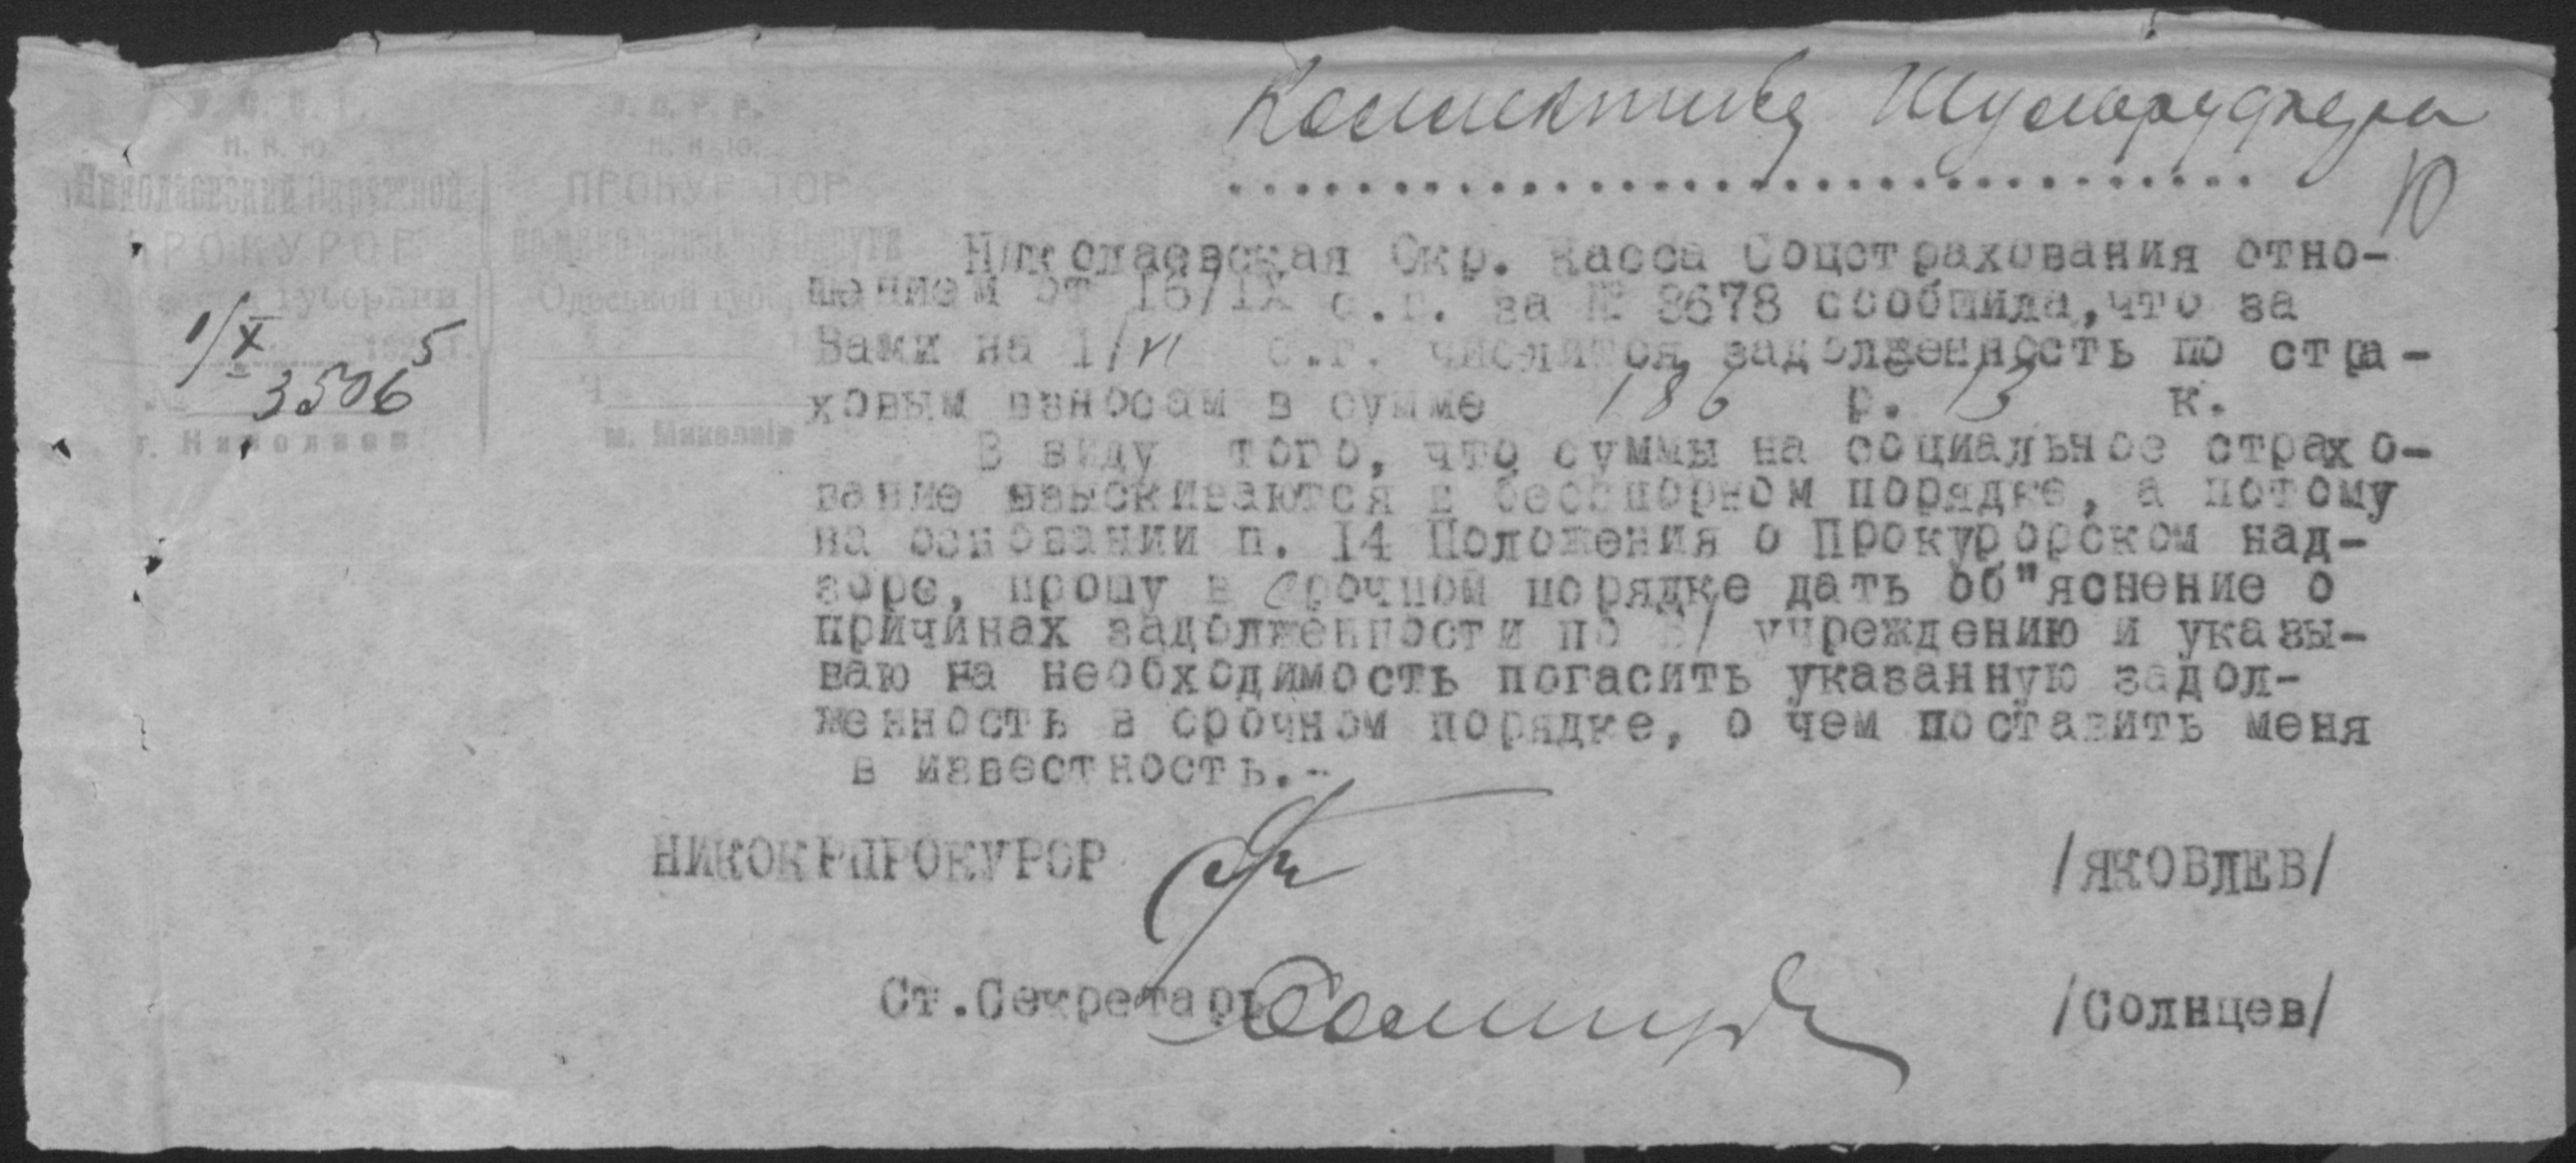 Коллективу
10
У. С. С. Р.
Н. К. Ю.
Николаевский Окружной
ПРОКУРОР
губернии
1/X 1925 г.
№ 3506
г. Николаев
У. С. Р. Р.
Н. К. Ю.
ПРОКУРАТОР
Округи
Одеської губ.
Ч.
м. Миколаїв
Николаевская Окр. Касса Соцстрахования отно-
шением от 16/IX с.г. за № 8678 сообщила,что за
Вами на 1/VI с.г. числится задолженность по стра-
ховым взносам в сумме 186 р. 13 к.
В виду того, что суммы на социальное страхо-
вание взыскиваются в бесспорном порядке, а потому
на основании п. I4 Положения о Прокурорском над-
зоре, прошу в срочном порядке дать об"яснение о
причинах задолженности по в/ учреждению и указы-
ваю на необходимость погасить указанную задол-
женность в срочном порядке, о чем поставить меня
в известность.-
НИКОКРПРОКУРОР /ЯКОВЛЕВ/
Ст.Секретарь Солнцев /Солнцев/